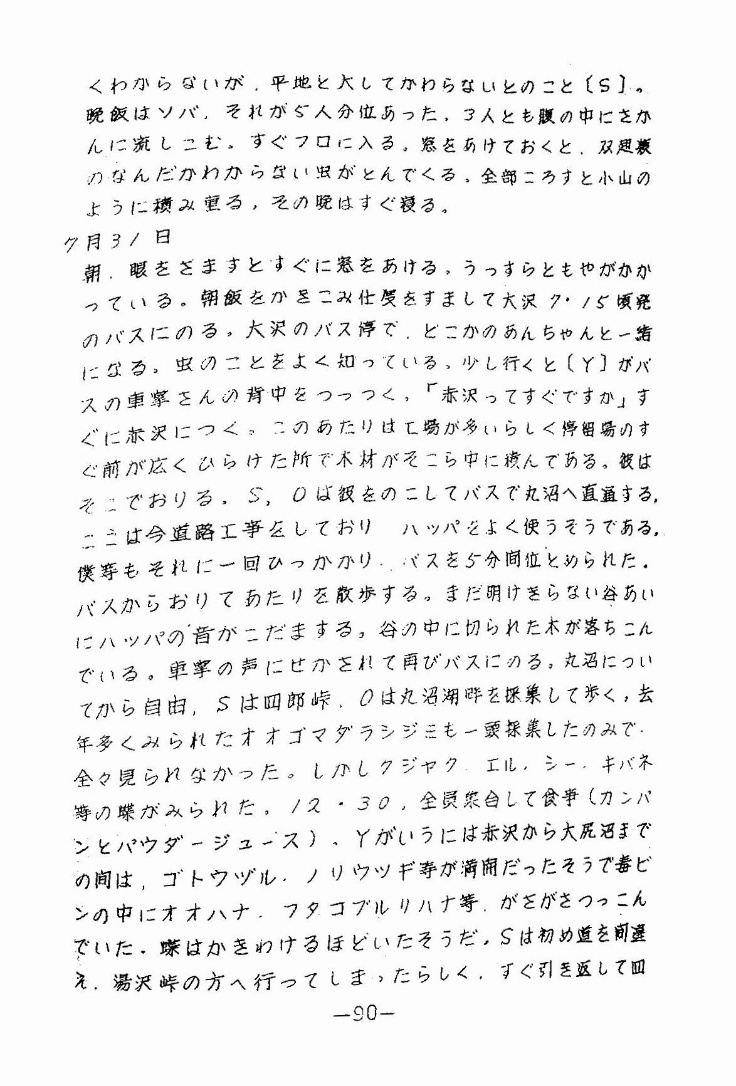 くわからないが，平地と大してかわらないとのこと〔S〕。
晩飯はソバ，それが5人分位あった。3人とも腹の中にさか
んに流しこむ。すぐフロに入る。窓をあけておくと，双翅類
のなんだかわからない虫がとんでくる。全部ころすと小山の
ように積み重る，その晩はすぐ寝る。
7月31日
朝，眼をさますとすぐに窓をあける。うっすらともやがかか
っている。朝飯をかきこみ仕度をすまして大沢7・15頃発
のバスにのる。大沢のバス停で，どこかのあんちゃんと一緒
になる。虫のことをよく知っている。少し行くと〔Y〕がバ
スの車掌さんの背中をつっつく。「赤沢ってすぐですか」す
ぐに赤沢につく。このあたりは工場が多いらしく停留場のす
ぐ前が広くひらけた所で木材がそこら中に積んである。彼は
そこでおりる。S，Oは彼をのこしてバスで丸沼へ直通する。
ここは今道路工事をしており　ハッパをよく使うそうである。
僕等もそれに一回ひっかかり，バスを5分間位とめられた。
バスからおりてあたりを散歩する。まだ明けきらない谷あい
にハッパの音がこだまする。谷の中に切られた木が落ちこん
でいる。車掌の声にせかされて再びバスにのる。丸沼につい
てから自由，Sは四郎峠，Oは丸沼湖畔を採集して歩く，去
年多くみられたオオゴマダラシジミも一頭採集したのみで，
全々見られなかった。しかしクジャク，エル，シー，キバネ
等の蝶がみられた。12・30，全員集合して食事（カンパ
ンとパウダージュース）。Yがいうには赤沢から大尻沼まで
の間は，ゴトウヅル，ノリウツギ等が満開だったそうで毒ビ
ンの中にオオハナ，フタコブルリハナ等，がさがさつっこん
でいた。蝶はかきわけるほどいたそうだ。Sは初め道を間違
え，湯沢峠の方へ行ってしまったらしく，すぐ引き返して四
—90—